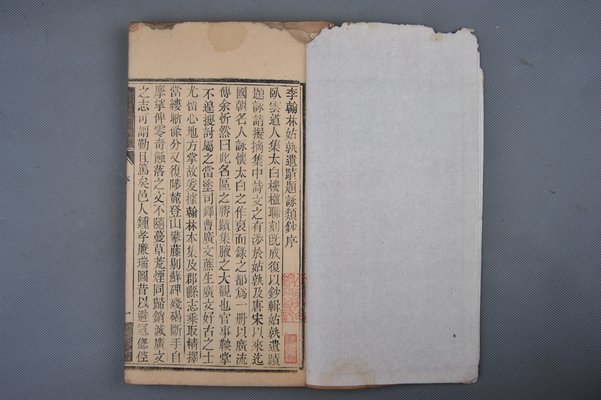 李翰林姑孰遺蹟題詠類鈔序
臥雲道人集太白樓楹聯刻既成復以鈔輯姑孰遺蹟
題詠請援摘集中詩文之有涉於姑孰及唐宋以來迄
國朝名人詠懷太白之作裒而錄之都為一冊以廣流
傳余忻然曰此名區之勝蹟集腋之大觀也官事鞅掌
不遑搜討屬之當塗司鐸曹廣文蔗生廣文好古之士
尤留心地方掌故爰據翰林本集及郡縣志乘取精擇
當縷晰條分又復陟麓登山攀藤剔蘚碑殘碣斷手自
摩挲俾零奇蝕落之文不隨蔓草荒煙同歸銷滅廣文
之志可謂勤且篤矣邑人鍾孝廉瑞圖昔以
序
一